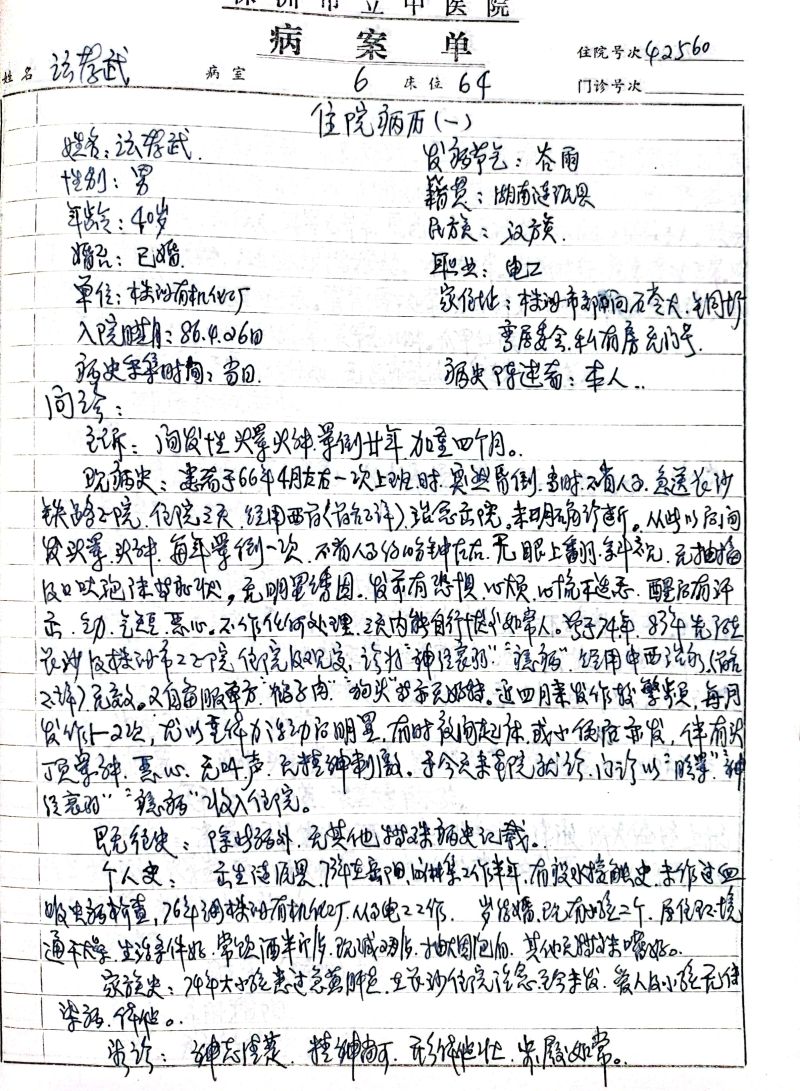 株洲市立中医院
病案单
住院号次 42560
姓名 病室 6 床位 64 门诊号次
住院病历(一)
姓名: 武 发病节气:谷雨
性别:男 籍贯:湖南涟源县
年龄:40岁 民族:汉族
婚否:已婚 职业:电工
单位:株洲有机化工厂 家住址:株洲市
入院时间:86.4.26日 居委会.私有房无门号
病史采集时间:当日 病史陈述者:本人
问诊:
主诉:间发性头晕头痛.晕倒廿年加重四个月。
现病史:患者于66年4月左右一次上班时.突然晕倒.当时不省人事.急送长沙
铁路医院.住院三天.经用西药(药名不详).治愈出院.未明确诊断。从此以后间
发头晕.头痛.每年晕倒一次.不省人事约10分钟左右.无眼上翻 无抽搐
及口吐泡沫等症状。无明显诱因。发前有恐惧.心烦.心慌不适感.醒后有汗
出. 气短.恶心.不作任何处理.三天内能自行恢复如常人。曾于74年.83年先后在
长沙及株洲市 医院住院及观察.诊为“神经衰弱”“癫痫”.经用中西治疗(药名
不详)无效。又自备服单方 “狗头”等亦无好转。近四月来发作较繁频.每月
发作1-2次,尤以重体力活动后明显.有时夜间起床.或小便后亦发.伴有头
顶晕痛.恶心.无叫声.无精神刺激。于今天来我院就诊.门诊以“眩晕”“神
经衰弱”“癫痫”收入住院。
既往史:除此病外.无其他特殊病史记载。
个人史: 出生涟源县.73年在岳阳 工作半年.有疫水接触史.未作过血
吸虫病检查,76年调株洲有机化工厂.从事电工工作. 岁结婚.现有小孩二个.居住环境
通风干燥.生活条件好.常饮酒半斤/日.现减 /日.抽烟 包/日.其他无特殊嗜好。
家族史:74年大小孩患过急黄肝炎.在长沙住院治愈至今未发.爱人及小孩无传
染病.体健。
望诊: 神志清楚.精神尚可.形体健壮. 如常。